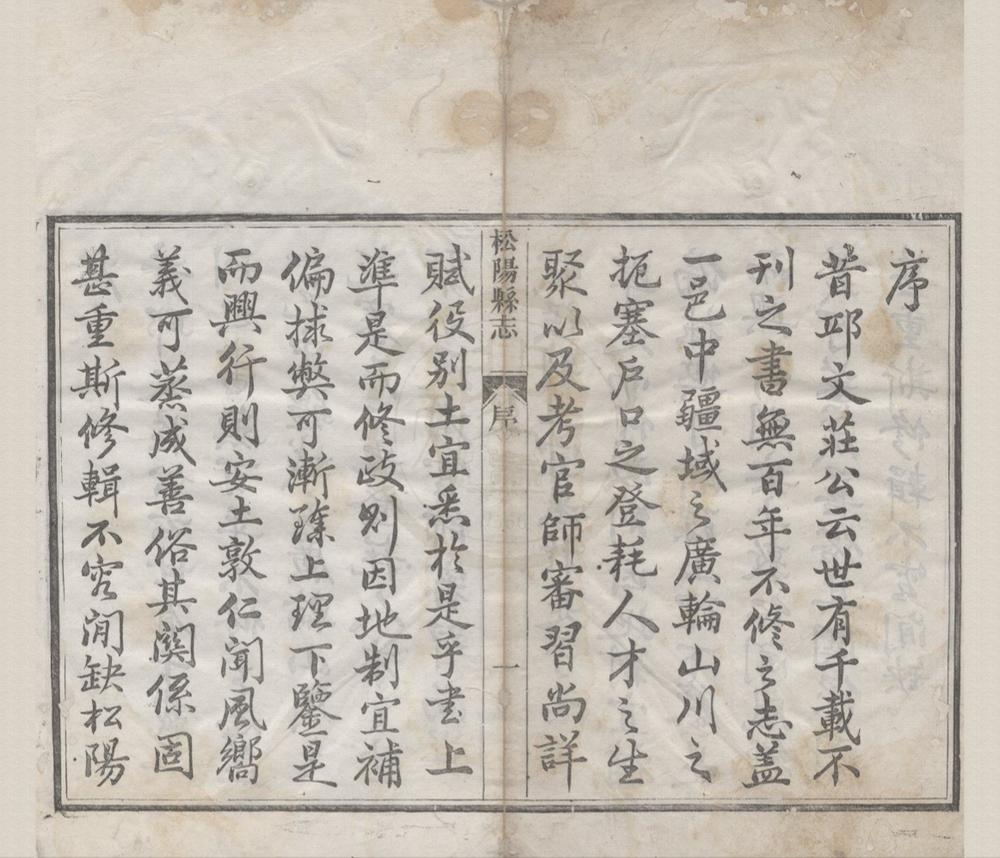 序
昔邱文莊公云世有千載不
刊之書無百年不修之志蓋
一邑中疆域之廣輪山川之
扼塞户口之登耗人才之生
聚以及考官師審習尚詳
松陽縣志
序
一
賦役别土宜悉於是乎書上
準是而修政則因地制宜補
偏捄弊可漸臻上理下鑒是
而興行則安土敦仁聞風嚮
義可蒸成善俗其関係固
甚重斯修輯不容間缺松陽